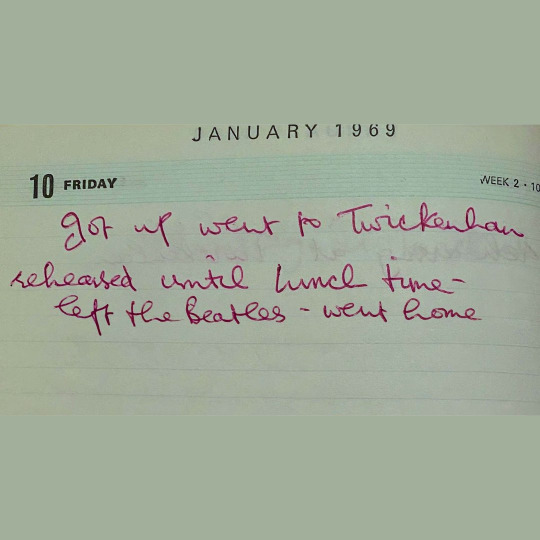 JANUARY 1969
10 FRIDAY WEEK 2 · 10
got up went to Twickenham
rehearsed until lunch time -
left the Beatles - went home